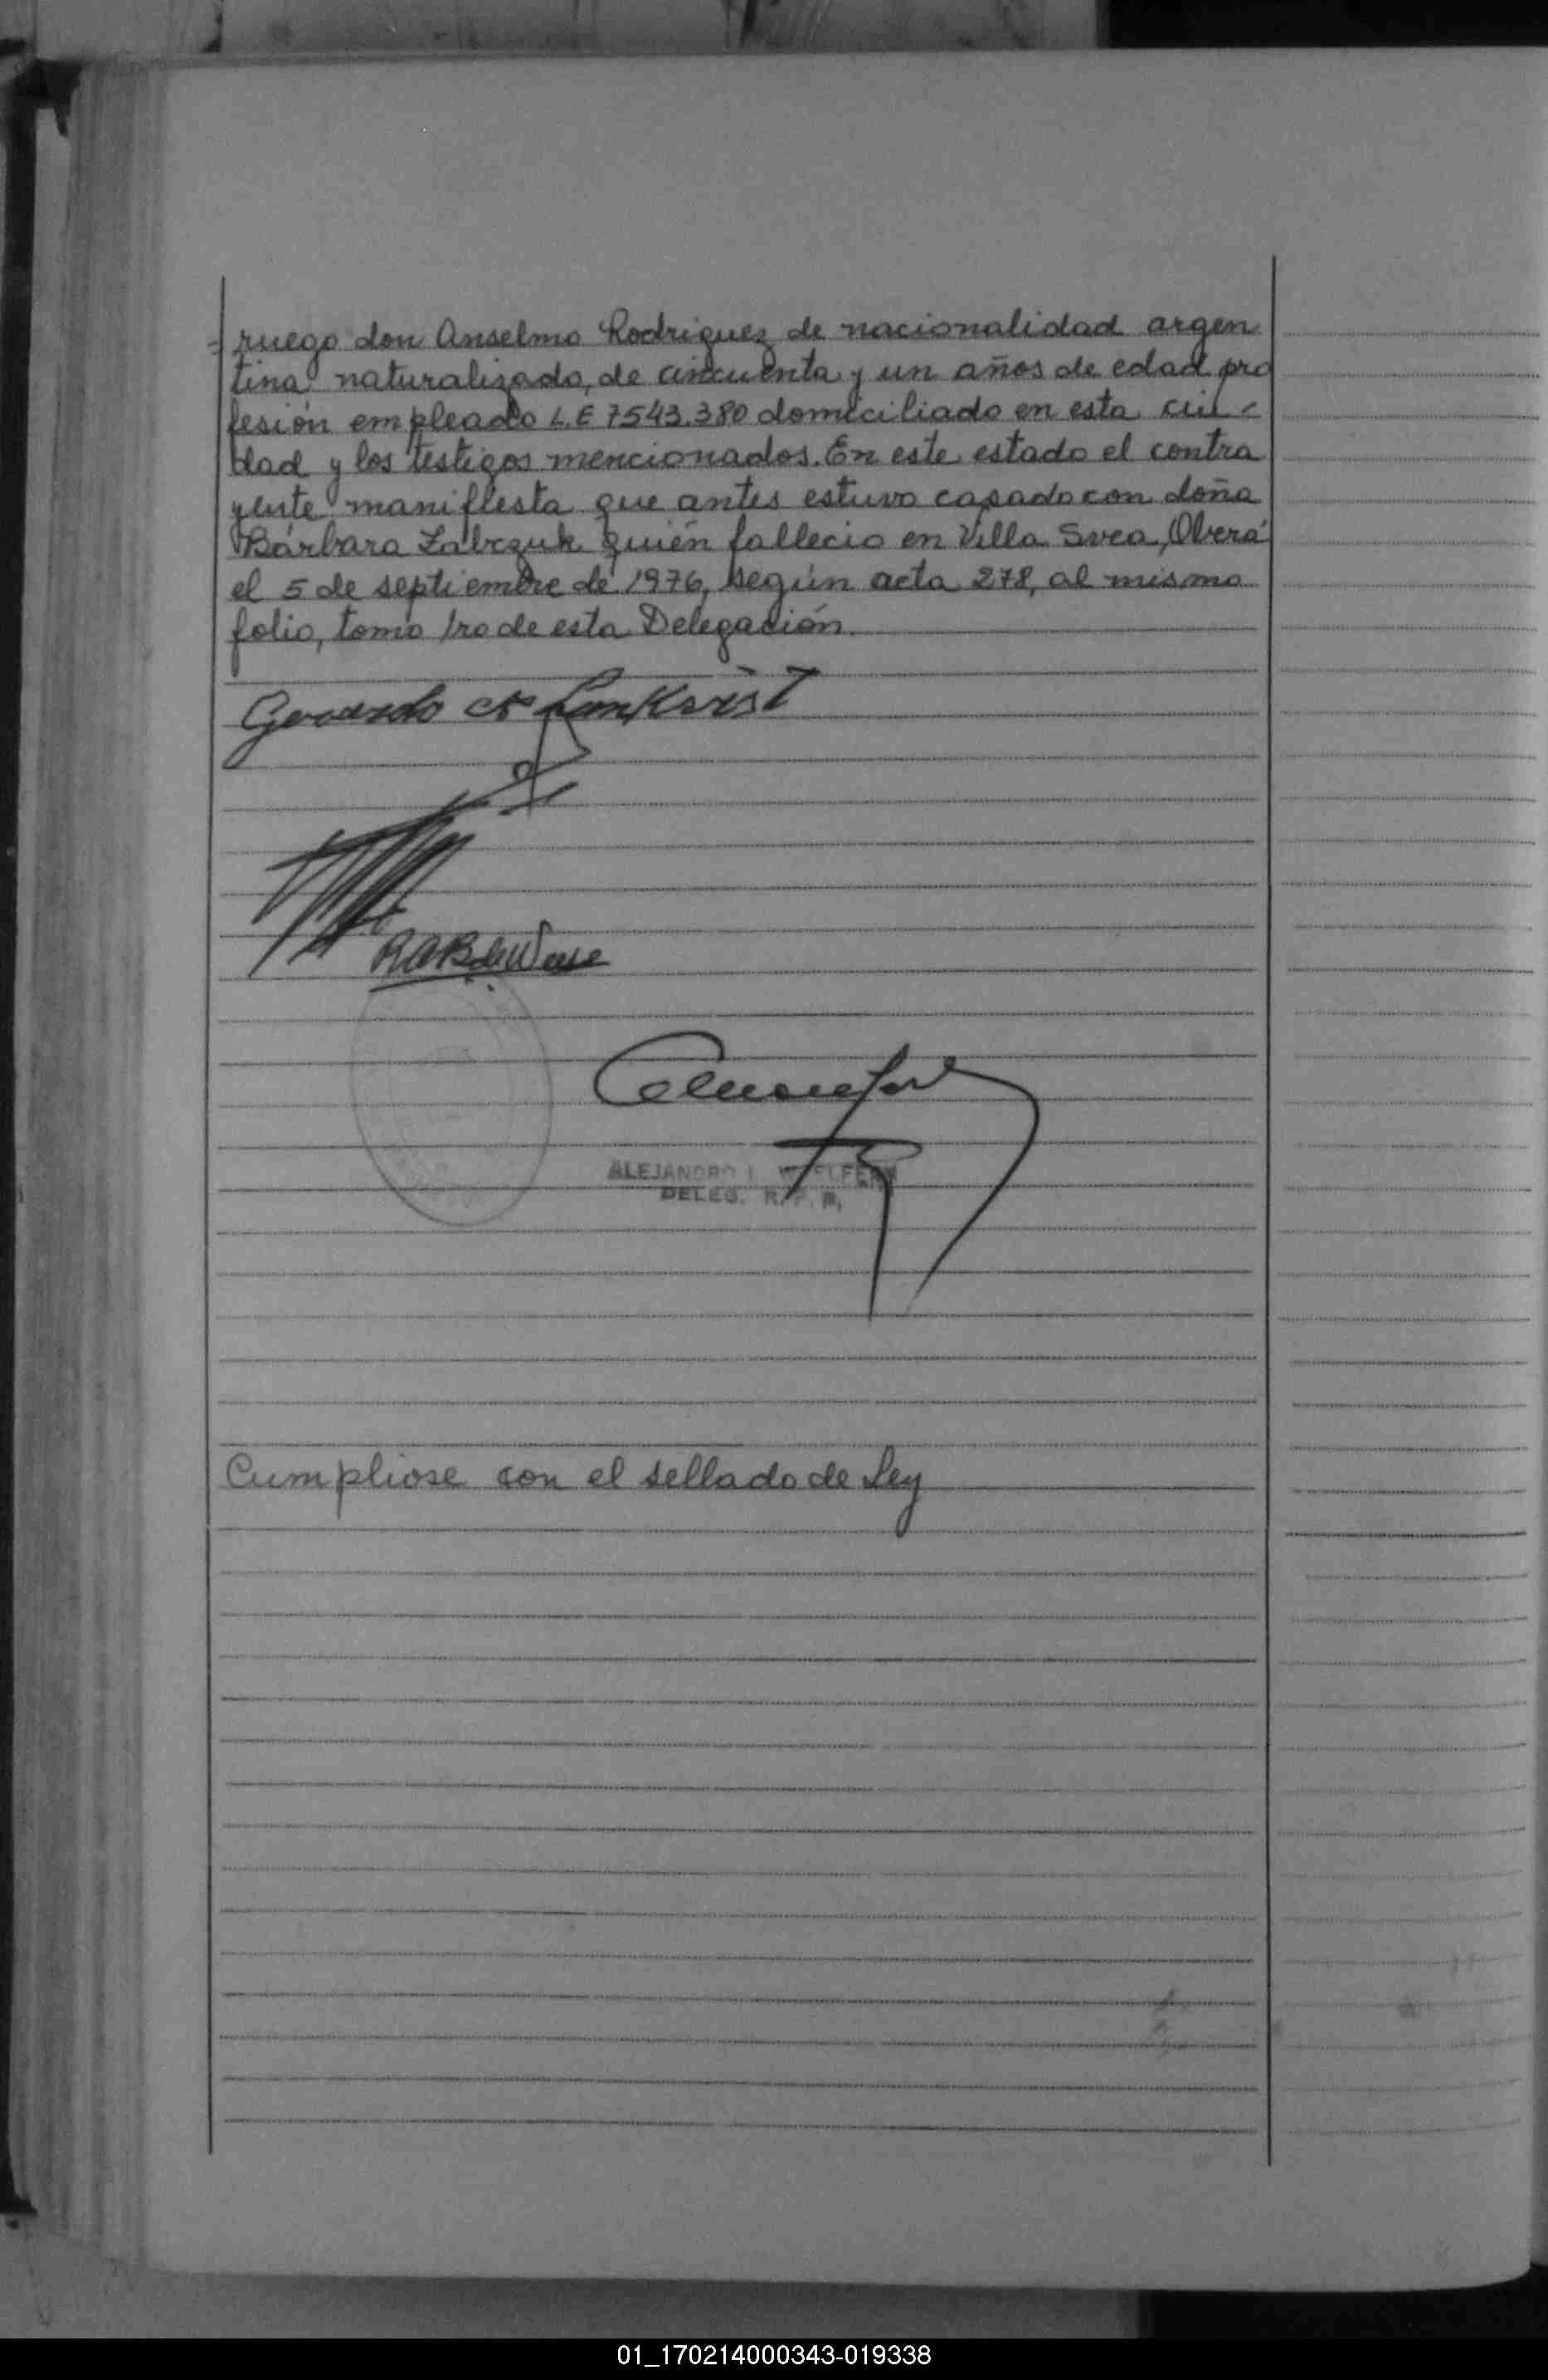 ruego don Anselmo Rodriguez de nacionalidad argen
tina naturalizado, de cincuenta y un años de edad pro
fesión empleado L.E 7543.380 domiciliado en esta ciu-
dad y los testigos mencionados. En este estado el contra
yente manifiesta que antes estuvo casado con doña
Bárbara Zabczuk quién fallecio en Villa Svea, Oberá
el 5 de septiembre de 1976, según acta 278, al mismo
folio, tomo 1ro de esta Delegación.
Gerardo
ALEJANDRO I.
DELEG. R. P.
Cumpliose con el sellado de Ley
01_170214000343-019338